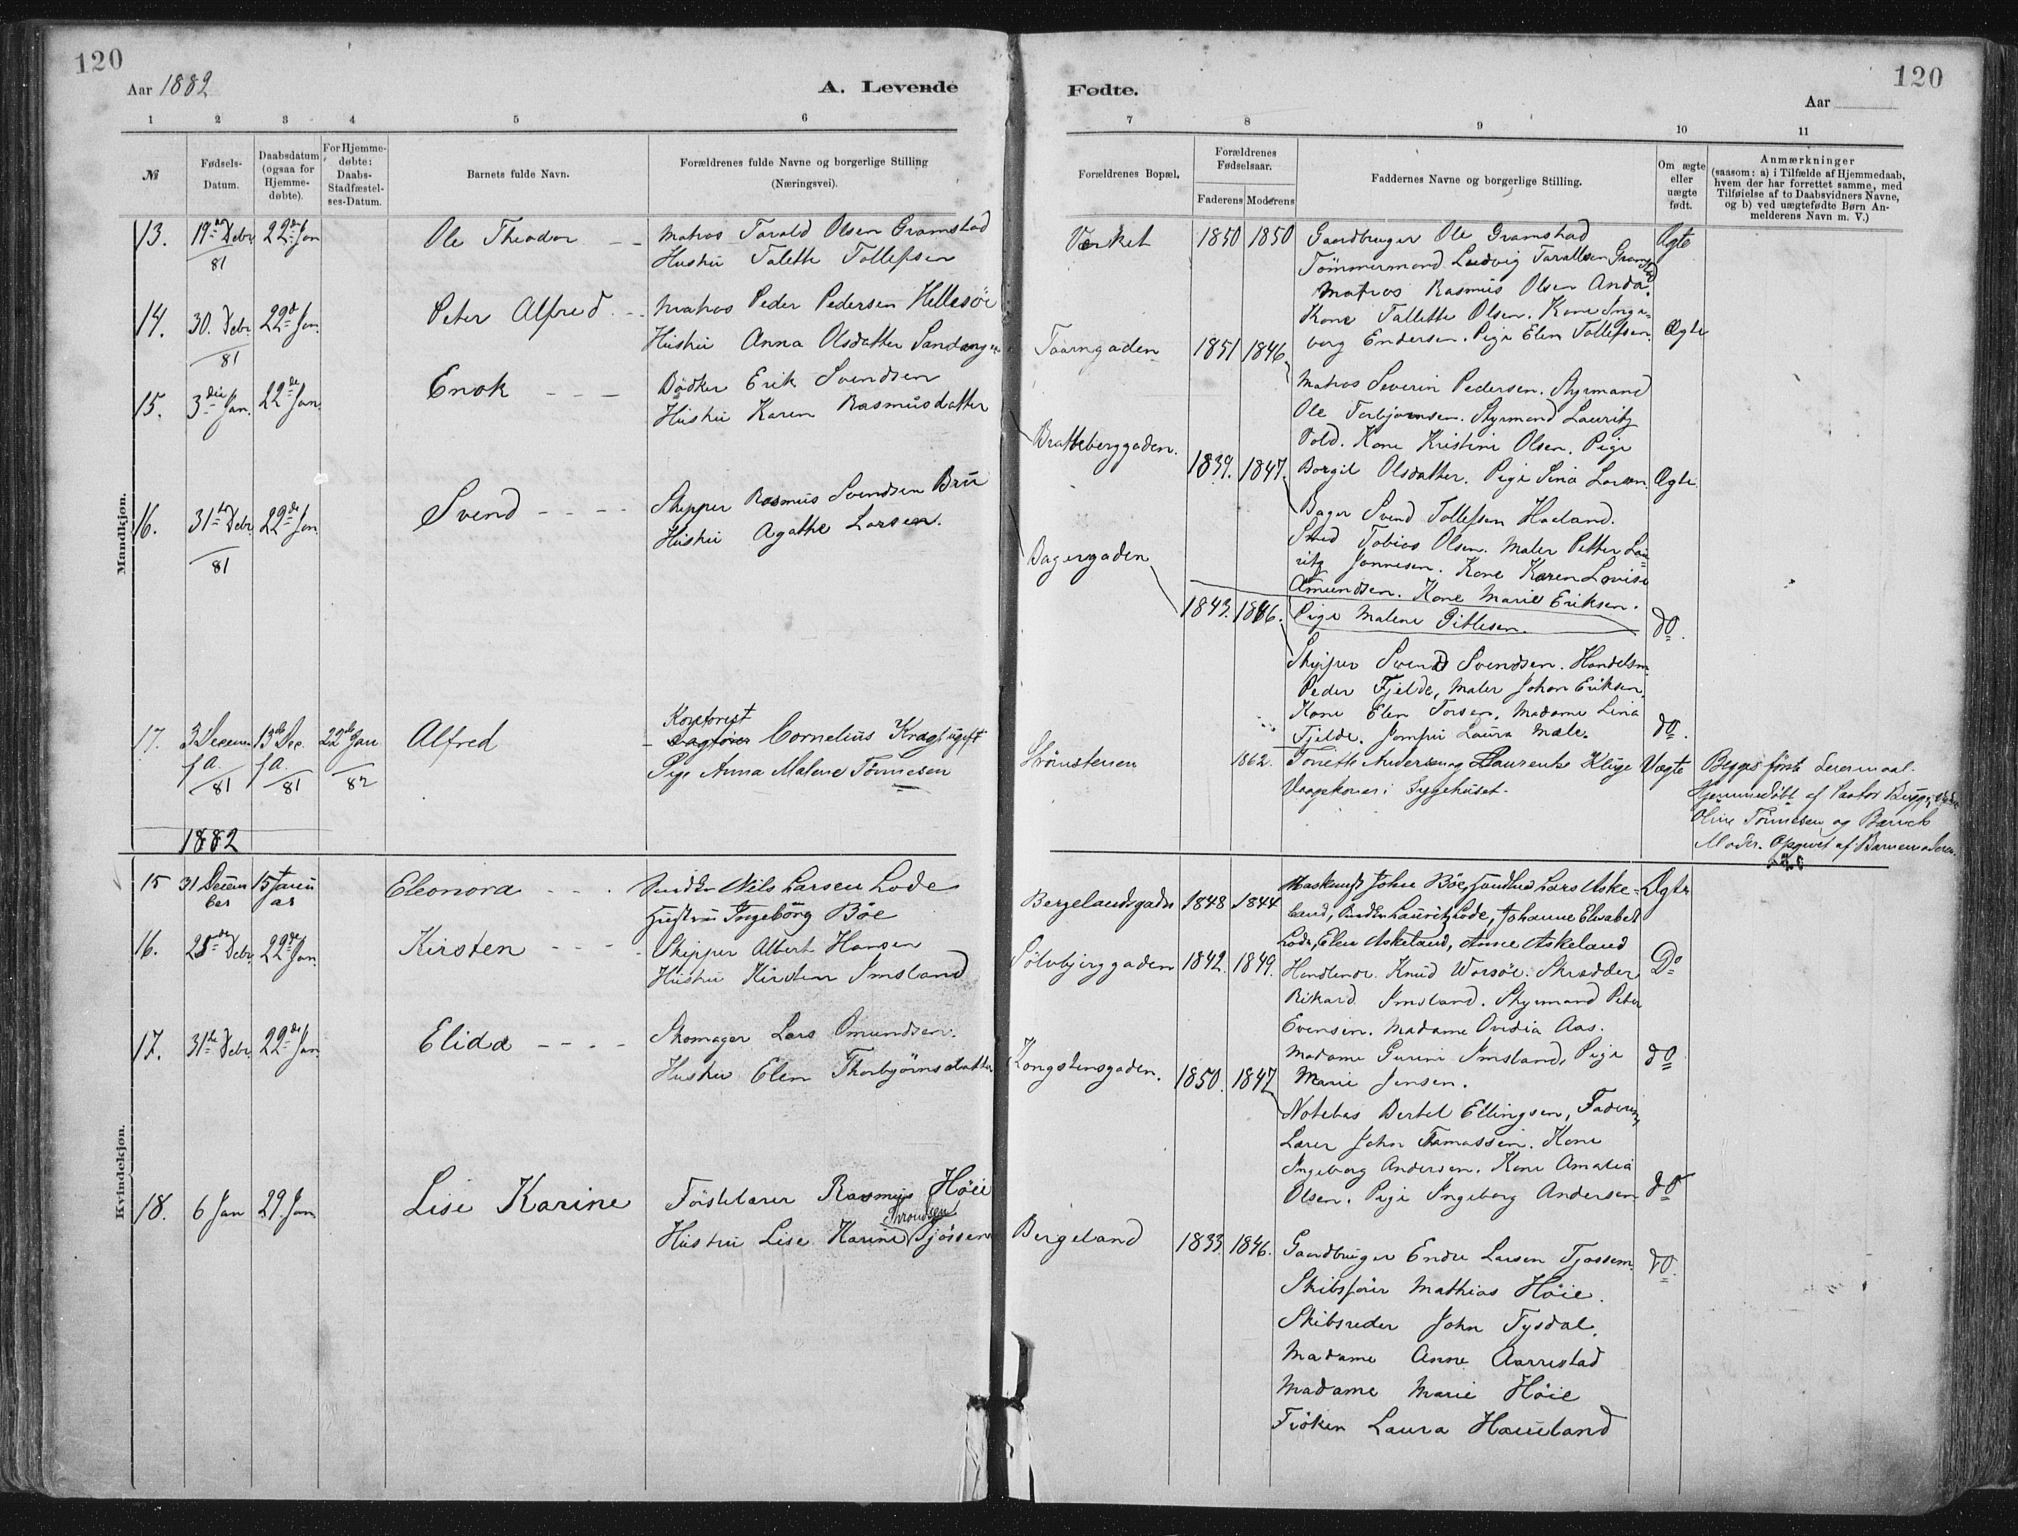 120
Aar 1882
A. Levende
1 2 3 4 5 6
№
Fødsels-Datum.
Daabsdatum (ogsaa for Hjemme-døbte).
For Hjemme-døbte: Daabs-Stadfæstel-ses-Datum.
Barnets fulde Navn.
Forældrenes fulde Navne og borgerlige Stilling
(Næringsvei).
Mandkjøn.
13. 19de Debr 81 22de Jan Ole Theodor
Matros Tarald Olsen Gramstad
Hustru Talette Tollefsen
14. 30. Debr 81 22de Jan. Peter Alfred
Matros Peder Pedersen Hellesöe
Hustru Anna Olsdatter
15. 3die Jan. 22de Jan. Enok
Bödker Erik Svendsen
Hustru Karen Rasmusdatter
16. 31te Debr. 81 22de Jan. Svend
Skipper Rasmus Svendsen Bru
Hustru Agathe Larsen.
17. 3 Decem f.A. 81 13de Dec. f.A. 81 22de Jan 82 Alfred
Cornelius Krag ugift
Pige Anna Malene Tönnesen
1882
Kvindekjøn.
15 31 Decem ber 15 Janu ar Eleonora
Nils Larsen Lode
Hustru Ingeborg Böe
16. 25de Debr. 22de Jan. Kirsten
Skipper Albert Hansen
Hustru Kirsten Imsland
17. 31te Debr 22de Jan. Elida
Skomager Lars Omundsen.
Hustru Elen Thorbjörnsdatter
18. 6 Jan 29. Jan. Lise Karine
Rasmus Höie
Throndsen
Hustru Lise Karine Tjössem
120
Fødte.
Aar
7 8 9 10 11
Forældrenes Bopæl.
Forældrenes Fødselsaar.
Faderens Moderens
Faddernes Navne og borgerlige Stilling.
Om ægte eller uægte født.
Anmærkninger
(saasom: a) i Tilfælde af Hjemmedaab,
hvem der har forrettet samme, med
Tilføielse af to Daabsvidners Navne,
og b) ved uægtefødte Børn An-
melderens Navn m. V.)
Værket 1850 1850 Gaardbruger Ole Gramstad Ægte
Tömmermand Ludvig Taraldsen Gramstad
Matros Rasmus Olsen Anda.
Kone Tallette Olsen. Kone Inge-
borg Endersen. Pige Elen Tollefsen. Ægte
Taarngaden 1851 1846
Matros Severin Pedersen. Styrmand
Ole Torbjornsen. Styrmand Lauritz
Told. Kone Kristine Olsen. Pige
Bratteberggaden. 1839. 1847. Borgil Olsdatter. Pige Sina Larsen. Ægte
Bager Svend Tollefsen Haaland.
Smed Tobias Olsen. Maler Petter Lau-
ritz Jonnesen. Kone Karen Lovise
Bagergaden
Amundsen. Kone Marie Eriksen.
1843. 1846. Pige Malene Gitlesen. do.
Skipper Svend Svendsen. Handelsm.
Peder Fjelde, Maler Johan Eriksen,
Kone Elen Torsen. Madame Lina
Fjelde. Jomfru Laura Male. do.
Strömstenen 1862. Tonette Andersen og Laurentz Kluge Uægte
Vaagekoner i Sygehuset.
Begges förste Leiermaal.
Hjemmedöbt af Pastor
Oline Tönnesen og Barnets
Moder. Opgivet af Barnemoderen.
Bergelandsgaden 1848 1844 John Böe, Lars Aske- Ægte
land, Lauritz Lode, Johanne Elisabet
Lode, Elen Askeland, Anne Askeland
Sölvbjerggaden 1842. 1849. Handlende Knud Worsöe. Skrædder Do
Rikard Imsland. Styrmand Peter
Evensen. Madame Ovidia Aas.
Madame Gurine Imsland, Pige do
Kongstensgaden. 1850. 1847 Marie Jensen.
Notebas Bertel Ellingsen, Faderen,
Lærer John Tamassen. Kone
Ingeborg Andersen. Kone Amalia
Olsen. Pige Ingeborg Andersen do
Bergeland 1833 1846. Gaardbruger Endre Larsen Tjossem. do.
Skibsförer Mathias Höie.
Skibsreder John Tysdal.
Madame Anne Aarrestad
Madame Marie Höie
Fröken Laura Haueland